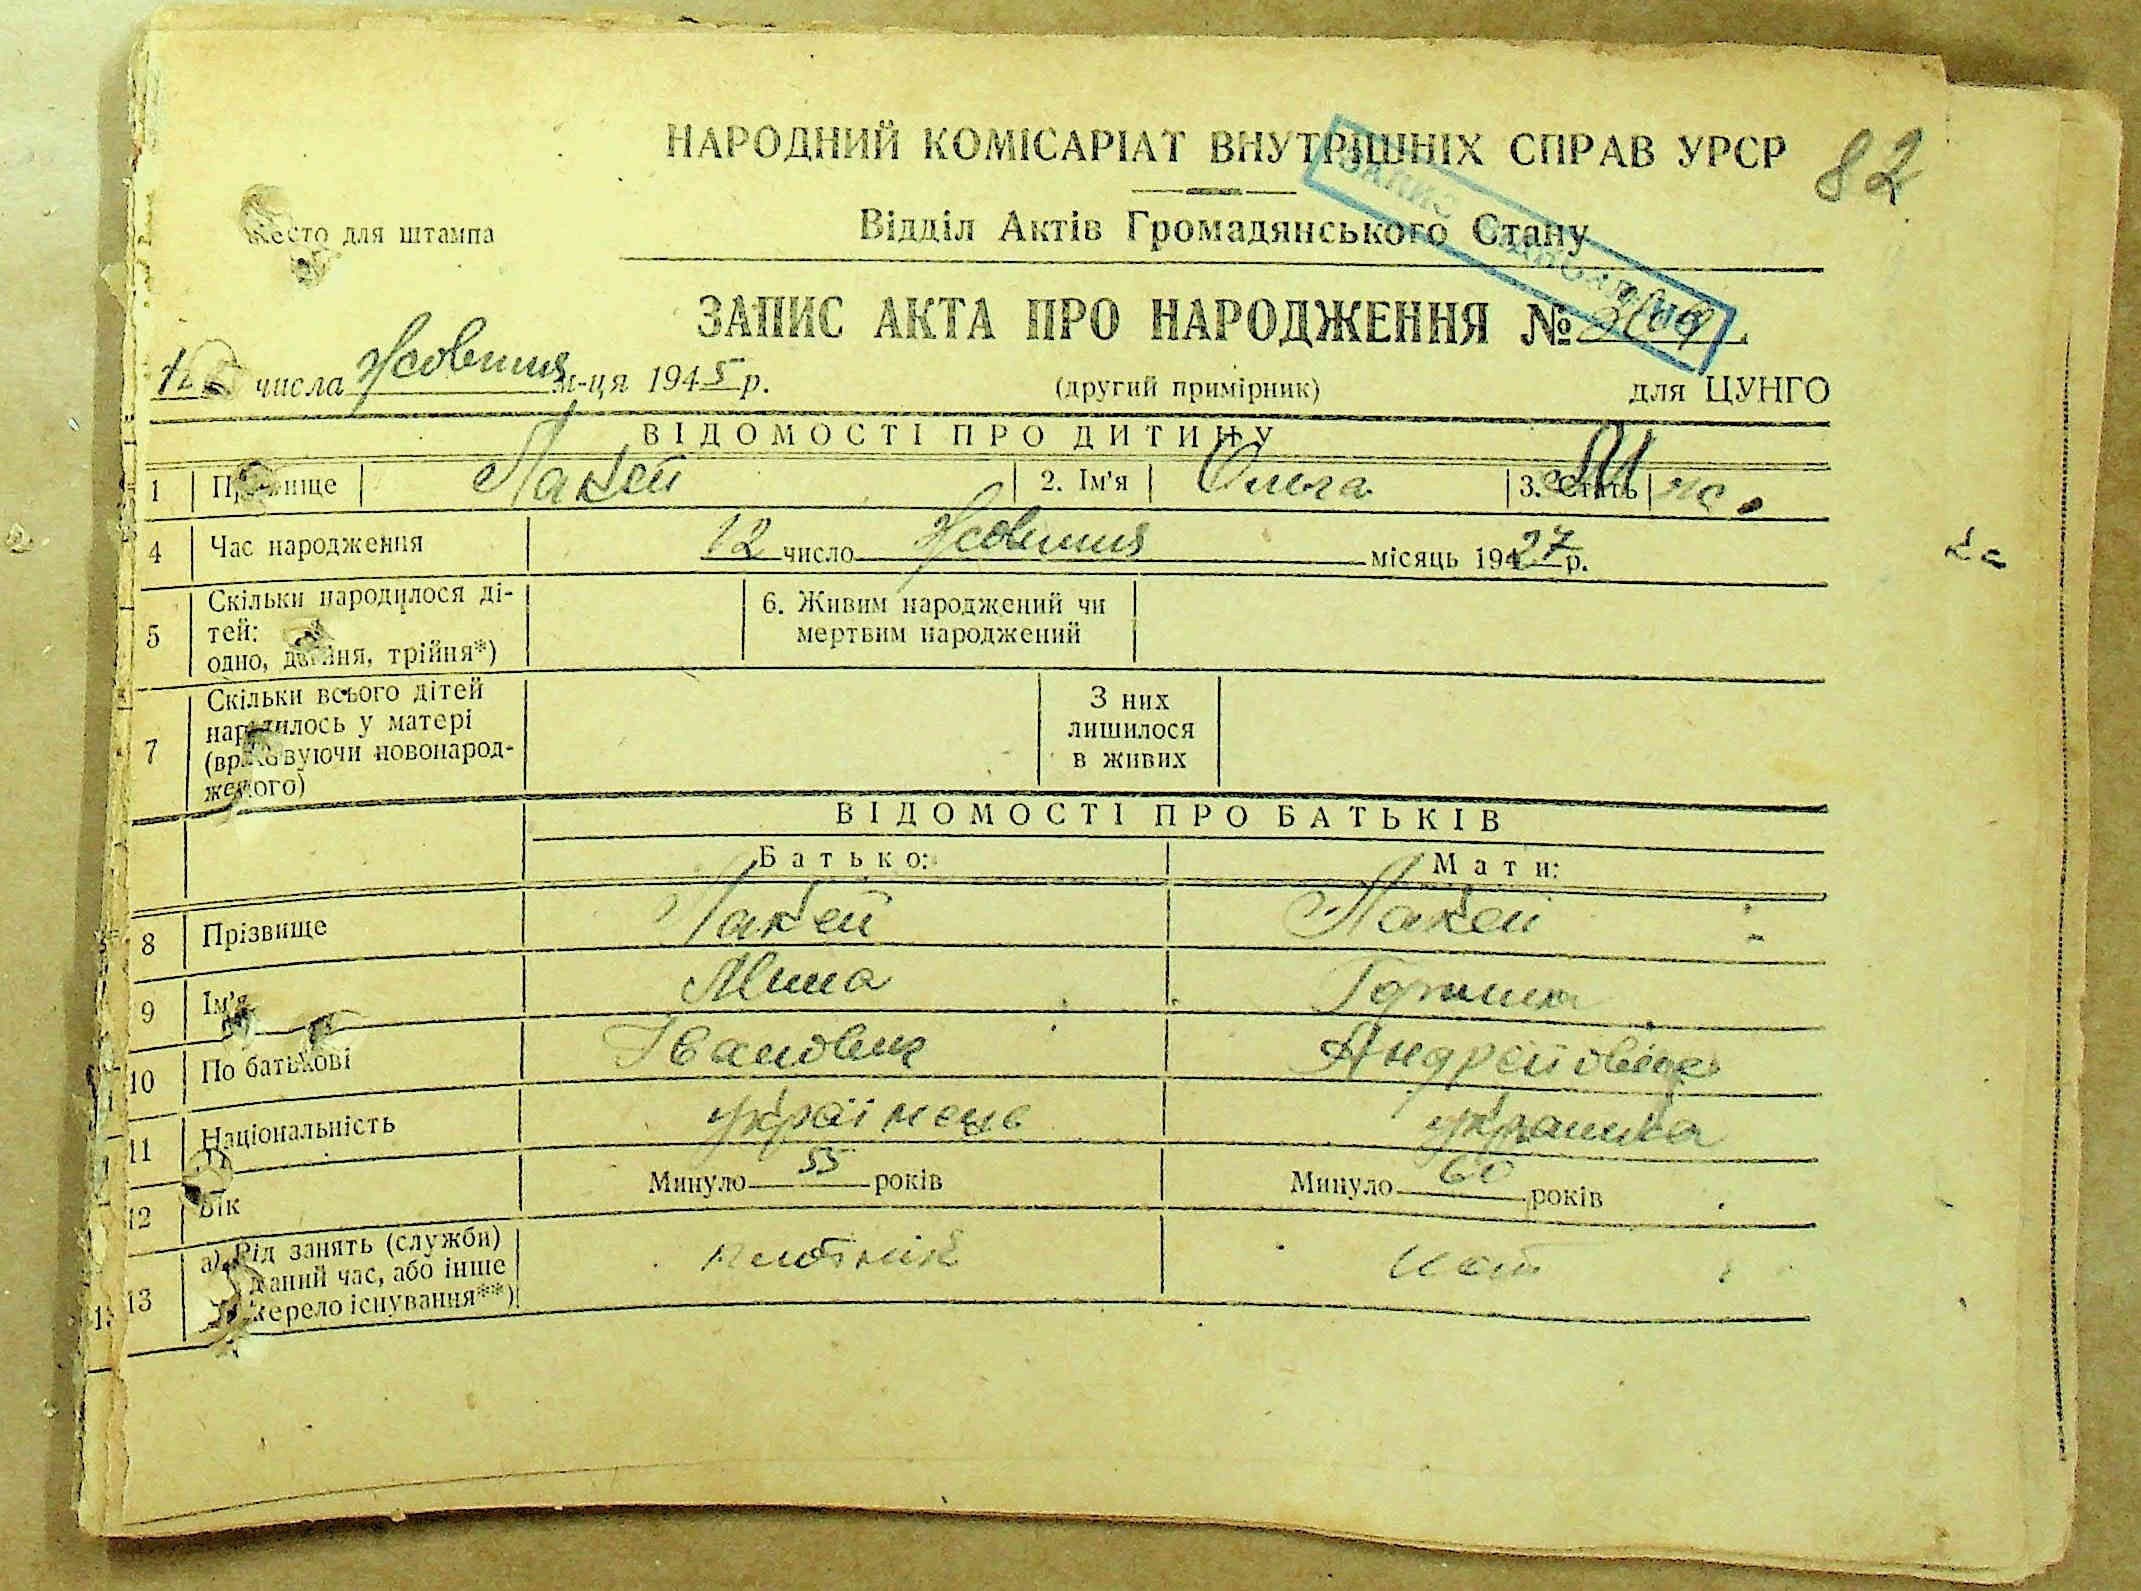 НАРОДНИЙ КОМІСАРІАТ ВНУТРІШНІХ СПРАВ УРСР 82
Место для штампа
Відділ Актів Громадянського Стану
ЗАПИС АКТА ПРО НАРОДЖЕННЯ №
числа Жовтня м-ця 1945 р. (другий примірник) для ЦУНГО
ВІДОМОСТІ ПРО ДИТИНУ
1 Прізвище Лакей 2. Ім'я Ольга 3. Стать
4 Час народження 12 число Жовтня місяць 1927 р.
5 Скільки народилося ді-
тей:
одно, двійня, трійня*)
6. Живим народжений чи
мертвим народжений
7 Скільки всього дітей
народилось у матері
(враховуючи новонарод-
женого)
З них
лишилося
в живих
ВІДОМОСТІ ПРО БАТЬКІВ
Батько: Мати:
8 Прізвище Лакей Лакей
9 Ім'я
10 По батькові Іванович Андрейовна
11 Національність українець українка
12 Вік Минуло 55 років Минуло 60 років
13 а) Рід занять (служби)
даний час, або інше
жерело існування**)